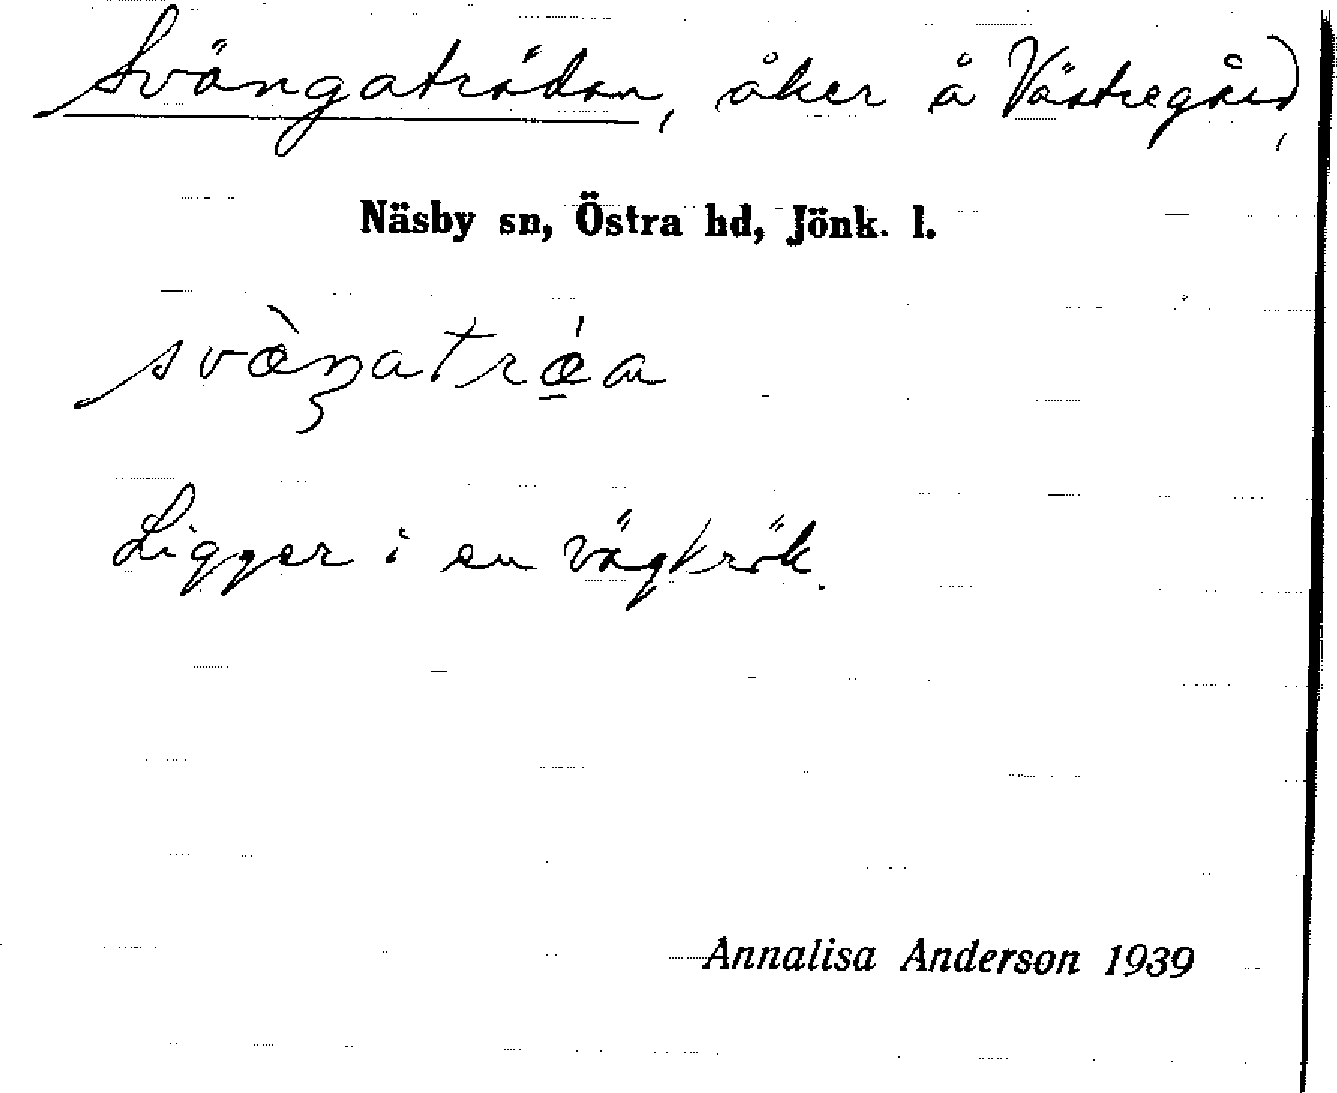 Svängaträdan, åker å Västregård,
Näsby sn, Östra hd, Jönk. l.
svæ̀ŋatrǽa
Ligger i en vägkrök.
Annalisa Anderson 1939